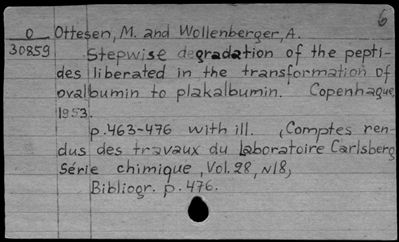 6
O Ottesen, M. and Wollenberger, A.
30859 Stepwise degradation of the pepti-
des liberated in the transformation of
ovalbumin to plakalbumin. Copenhague,
1953.
p.463-476 with ill. (Comptes ren-
dus des travaux du Laboratoire Carlsberg
Série chimique, Vol. 28, N18,
Bibliogr. p. 476.